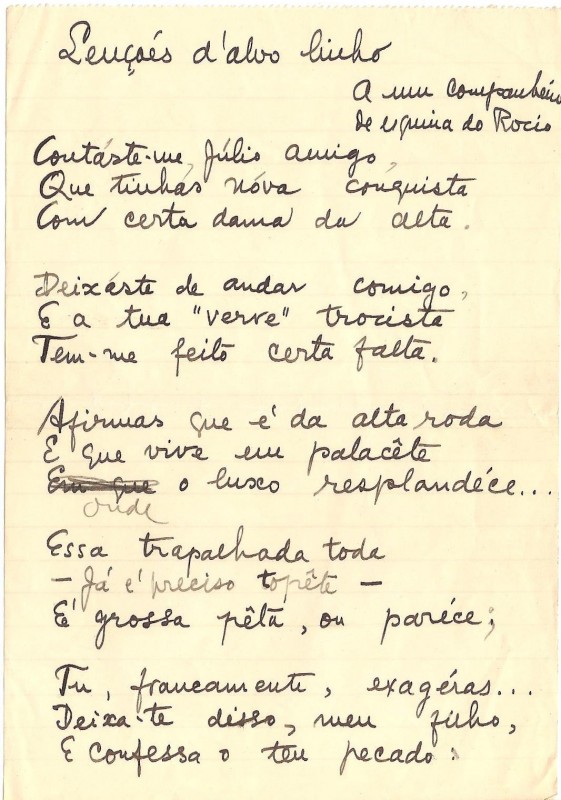 Lençoés d'alvo linho
A um companheiro
de esquina do Rocio
Contáste-me, Júlio amigo,
Que tinhas nóva conquista
Com certa dama da alta.
Deixáste de andar comigo,
E a tua "verve" trocista
Tem-me feito certa falta.
Afirmas que é da alta roda
E que vive em palacête
Em que o luxo resplandéce...
onde
Essa trapalhada toda
— Já é preciso topête —
É grossa pêta, ou paréce;
Tu, francamente, exagéras...
Deixa-te disso, meu filho,
E confessa o teu pecado: